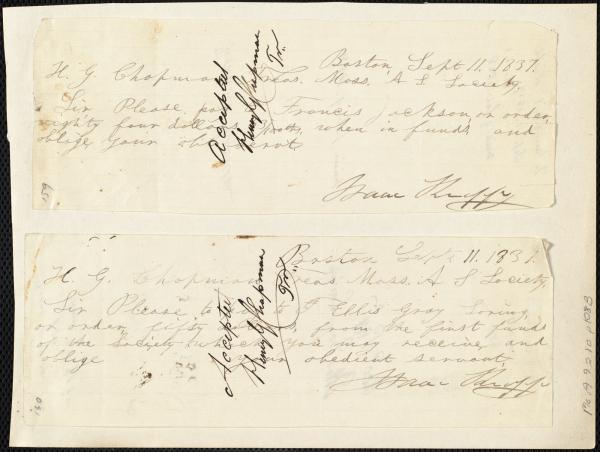 Boston Sept 11. 1837.
H. G. Chapman Treas. Mass. A S Society,
Sir Please pay Francis Jackson, or order,
eighty four dollars when in funds and
oblige your ob servt
Isaac Knapp
Accepted
Henry G Chapman
Tr.
159
Boston Sept 11. 1837.
H. G. Chapman Treas Mass. A S Society,
Sir Please to pay to Ellis Gray Loring
or order, fifty from the first funds
of the Society which you may receive and
oblige your obedient servant,
Isaac Knapp
Accepted
Henry G Chapman
Tr.
160